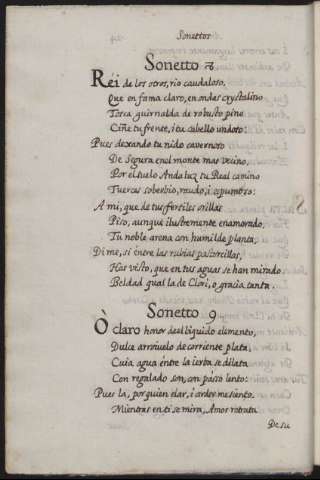 Sonettos
Sonetto 2
Rei de los otros, rio caudaloso,
Que en fama claro, en ondas crystalino
Tosca guirnalda de robusto pino
Ciñe tu frente, i tu cabello undoso:
Pues dexando tu nido cavernoso
De Segura en el monte mas vecino,
Por el suelo Andaluz tu Real camino
Tuerces soberbio, raudo, i espumoso:
A mi, que de tus fertiles orillas
Piso, aunque ilustremente enamorado,
Tu noble arena con humilde planta;
Dime, si entre las rubias pastorcillas,
Has visto, que en tus aguas se han mirado
Beldad qual la de Clori, o gracia tanta.
Sonetto 9
Ò claro honor de el liquido elemento,
Dulce arroiuelo de corriente plata;
Cuia agua entre la ierba se dilata
Con regalado son, con passo lento:
Pues la, por quien elar, i arder me siento,
Mientras en ti se mira, Amor retrata
De su